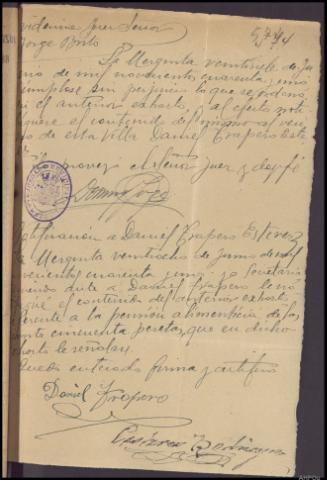 Providencia Juez Señor
Jorge Brito
5774
La Merguita veintiseis de Ju
nio de mil novecientos cuarenta y uno
cumplase sin perjuicio lo que se ordena
en el anterior exhorto, al efecto not
el contenido del mismo al veci
no de esta Villa Daniel Trapero Este
proveyo el Señor Juez y doy fé
Notificación a Daniel Trapero Estevez
La Merguita veintiocho de junio de mil
novecientos cuarenta y uno: yo Secretario
teniendo ante a Daniel Trapero le no
tifiqué el contenido del anterior exhorto
referente a la pensión alimenticia de las
ciento cincuenta pesetas, que en dicho
exhorto le señalan
Queda enterado firma y certifico
Daniel Trapero
Rodriguez
AHPOu